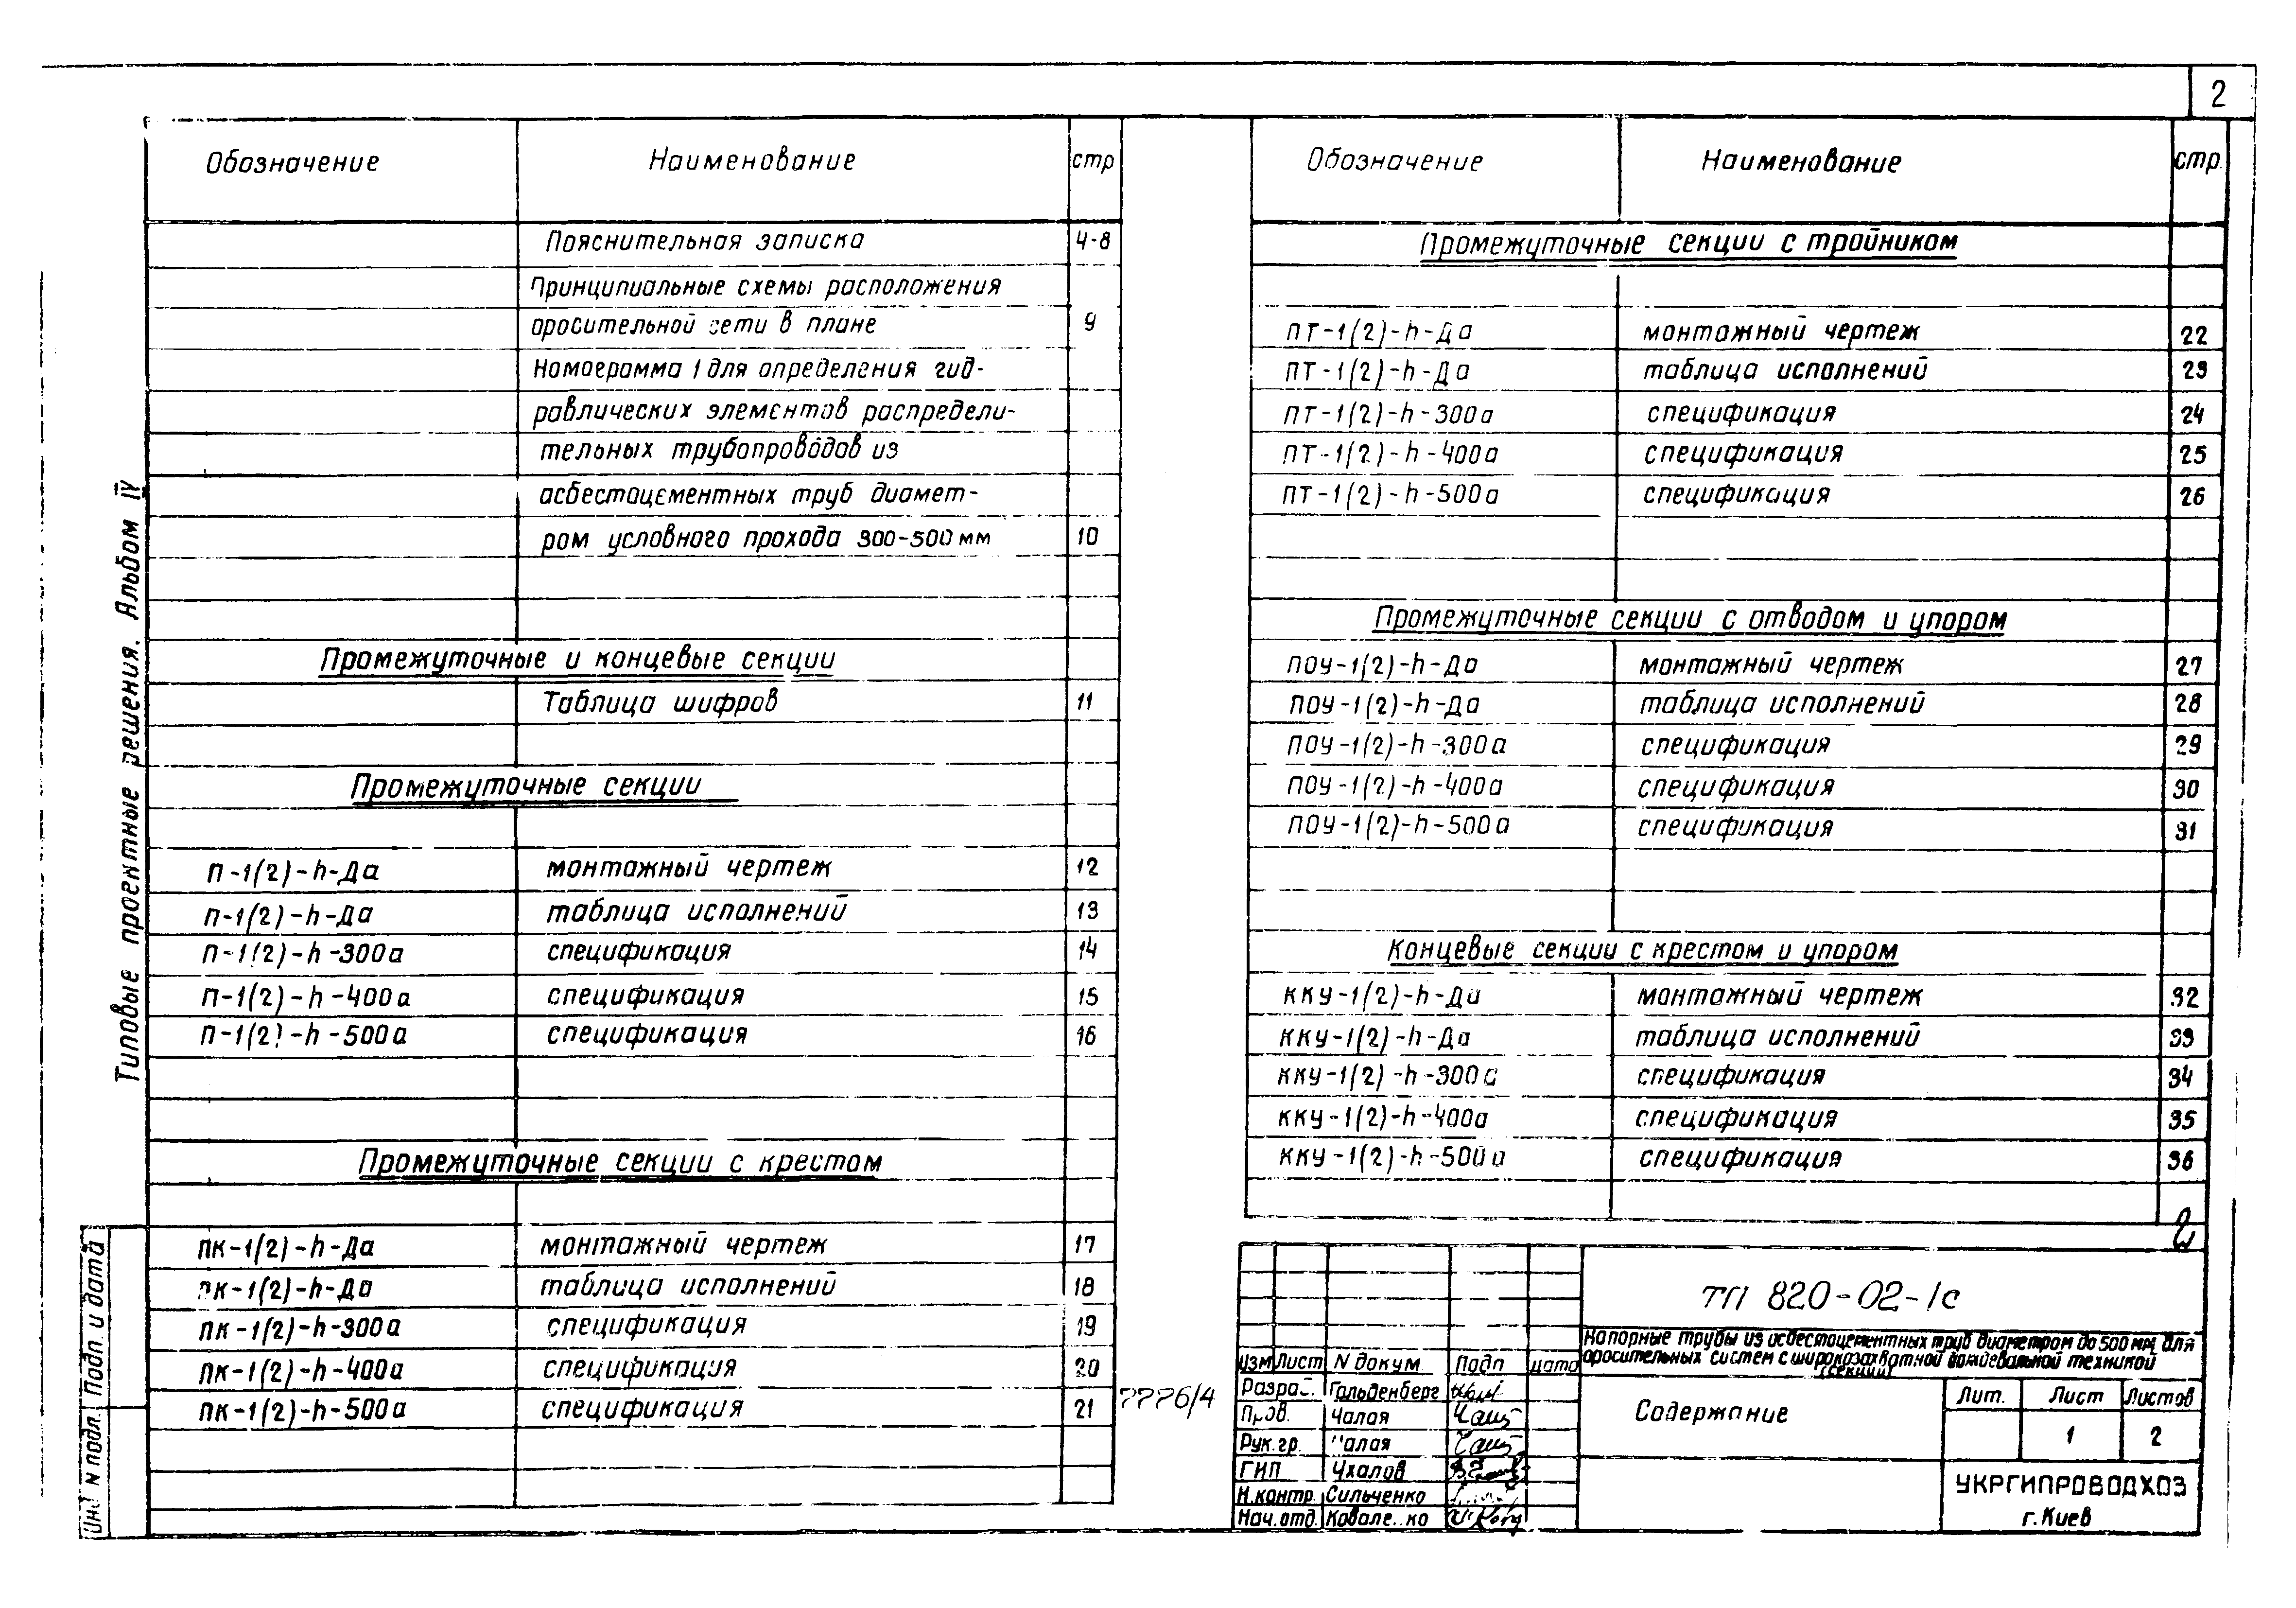 2
Обозначение Наименование стр
Пояснительная записка 4-8
Принципиальные схемы расположения
оросительной сети в плане 9
Номограмма 1 для определения гид-
равлических элементов распредели-
тельных трубопроводов из
асбестоцементных труб диамет-
ром условного прохода 300-500 мм 10
Промежуточные и концевые секции
Таблица шифров 11
Промежуточные секции
П-1(2)-h-Да монтажный чертеж 12
П-1(2)-h-Да таблица исполнений 13
П-1(2)-h-300а спецификация 14
П-1(2)-h-400а спецификация 15
П-1(2)-h-500а спецификация 16
Промежуточные секции с крестом
ПК-1(2)-h-Да монтажный чертеж 17
ПК-1(2)-h-Да таблица исполнений 18
ПК-1(2)-h-300а спецификация 19
ПК-1(2)-h-400а спецификация 20
ПК-1(2)-h-500а спецификация 21
Обозначение Наименование стр.
Промежуточные секции с тройником
ПТ-1(2)-h-Да монтажный чертеж 22
ПТ-1(2)-h-Да таблица исполнений 23
ПТ-1(2)-h-300а спецификация 24
ПТ-1(2)-h-400а спецификация 25
ПТ-1(2)-h-500а спецификация 26
Промежуточные секции с отводом и упором
ПОУ-1(2)-h-Да монтажный чертеж 27
ПОУ-1(2)-h-Да таблица исполнений 28
ПОУ-1(2)-h-300а спецификация 29
ПОУ-1(2)-h-400а спецификация 30
ПОУ-1(2)-h-500а спецификация 31
Концевые секции с крестом и упором
ККУ-1(2)-h-Да монтажный чертеж 32
ККУ-1(2)-h-Да таблица исполнений 33
ККУ-1(2)-h-300а спецификация 34
ККУ-1(2)-h-400а спецификация 35
ККУ-1(2)-h-500а спецификация 36
Типовые проектные решения. Альбом IV
Подп. и дата
Инв N подл.
7776/4
ТП 820-02-1с
Напорные трубы из асбестоцементных труб диаметром до 500 мм для
оросительных систем с широкозахватной дождевальной техникой
(секции)
Изм Лист N докум Подп дата
Разраб. Гольденберг
Пров. Чалая
Рук.гр. Чалая
ГИП Ухалов
Н.контр. Сильченко
Нач.отд. Коваленко
Содержание
Лит. Лист Листов
1 2
УКРГИПРОВОДХОЗ
г.Киев